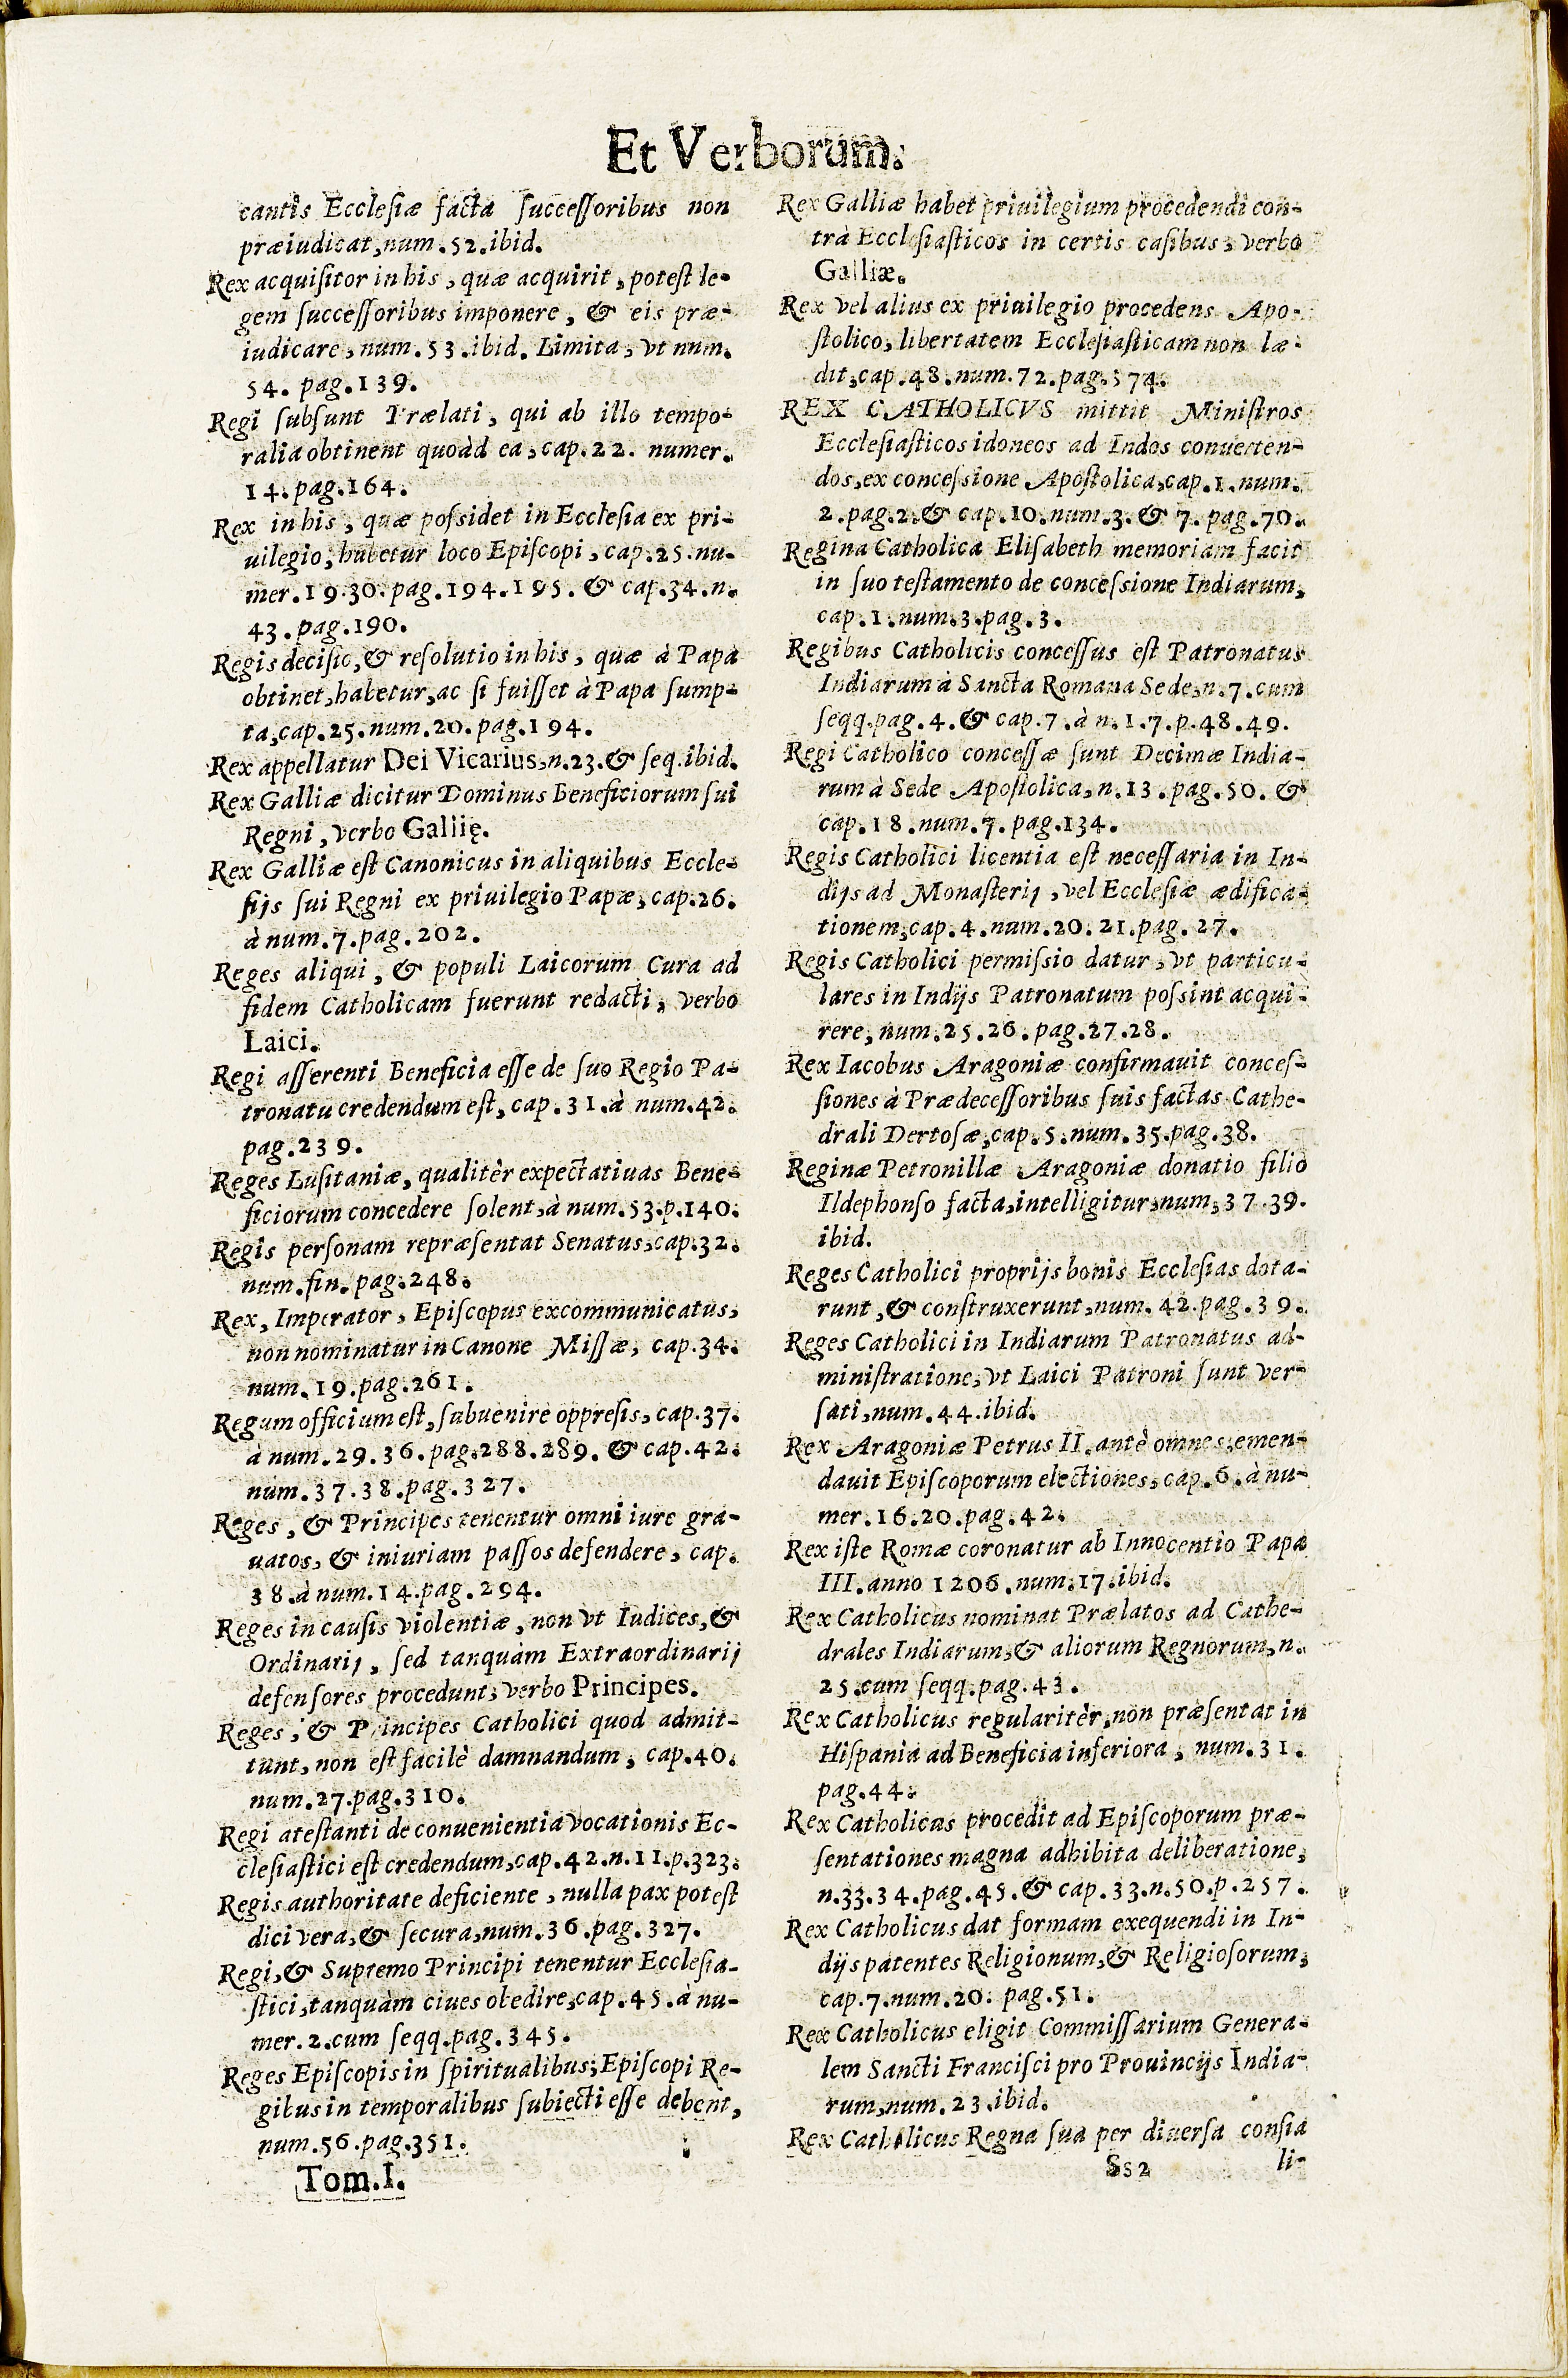 Et Verborum.
cantis Ecclesiæ facta successoribus non
præiudicat, num. 52. ibid.
Rex acquisitor in his, quæ acquirit, potest le-
gem successoribus imponere, & eis præ-
iudicare, num. 53. ibid. Limita, vt num.
54. pag. 139.
Regi subsunt Prælati, qui ab illo tempo-
ralia obtinent quoàd ea, cap. 22. numer.
14. pag. 164.
Rex in his, quæ possidet in Ecclesia ex pri-
uilegio, habetur loco Episcopi, cap. 25. nu-
mer. 19. 30. pag. 194. 195. & cap. 34. n.
43. pag. 190.
Regis decisio, & resolutio in his, quæ à Papa
obtinet, habetur, ac si fuisset à Papa sump-
ta, cap. 25. num. 20. pag. 194.
Rex appellatur Dei Vicarius, n. 23. & seq. ibid.
Rex Galliæ dicitur Dominus Beneficiorum sui
Regni, verbo Gallię.
Rex Galliæ est Canonicus in aliquibus Eccle-
sijs sui Regni ex priuilegio Papæ, cap. 26.
à num. 7. pag. 202.
Reges aliqui, & populi Laicorum Cura ad
fidem Catholicam fuerunt redacti, verbo
Laici.
Regi asserenti Beneficia esse de suo Regio Pa-
tronatu credendum est, cap. 31. à num. 42.
pag. 239.
Reges Lusitaniæ, qualitèr expectatiuas Bene-
ficiorum concedere solent, à num. 53. p. 140.
Regis personam repræsentat Senatus, cap. 32.
num. fin. pag. 248.
Rex, Imperator, Episcopus excommunicatus,
non nominatur in Canone Missæ, cap. 34.
num. 19. pag. 261.
Regum officium est, subuenire oppresis, cap. 37.
à num. 29. 36. pag. 288. 289. & cap. 42.
num. 37. 38. pag. 327.
Reges, & Principes tenentur omni iure gra-
uatos, & iniuriam passos defendere, cap.
38. à num. 14. pag. 294.
Reges in causis violentiæ, non vt Iudices, &
Ordinarij, sed tanquàm Extraordinarij
defensores procedunt, verbo Principes.
Reges, & Principes Catholici quod admit-
tunt, non est facilè damnandum, cap. 40.
num. 27. pag. 310.
Regi atestanti de conuenientia vocationis Ec-
clesiastici est credendum, cap. 42. n. 11. p. 323.
Regis authoritate deficiente, nulla pax potest
dici vera, & secura, num. 36. pag. 327.
Regi, & Supremo Principi tenentur Ecclesia-
stici, tanquàm ciues obedire, cap. 45. à nu-
mer. 2. cum seqq. pag. 345.
Reges Episcopis in spiritualibus; Episcopi Re-
gibus in temporalibus subiecti esse debent,
num. 56. pag. 351.
Tom. I.
Rex Galliæ habet priuilegium procedendi con-
trà Ecclesiasticos in certis casibus, verbo
Galliæ.
Rex vel alius ex priuilegio procedens Apo-
stolico, libertatem Ecclesiasticam non læ-
dit, cap. 48. num. 72. pag. 374.
REX CATHOLICVS mittit Ministros
Ecclesiasticos idoneos ad Indos conuerten-
dos, ex concessione Apostolica, cap. 1. num.
2. pag. 2. & cap. 10. num. 3. & 7. pag. 70.
Regina Catholica Elisabeth memoriam facit
in suo testamento de concessione Indiarum,
cap. 1. num. 3. pag. 3.
Regibus Catholicis concessus est Patronatus
Indiarum à Sancta Romana Sede, n. 7. cum
seqq. pag. 4. & cap. 7. à n. 1. 7. p. 48. 49.
Regi Catholico concessæ sunt Decimæ India-
rum à Sede Apostolica, n. 13. pag. 50. &
cap. 18. num. 7. pag. 134.
Regis Catholici licentia est necessaria in In-
dijs ad Monasterij, vel Ecclesiæ ædifica-
tionem, cap. 4. num. 20. 21. pag. 27.
Regis Catholici permissio datur, vt particu-
lares in Indijs Patronatum possint acqui-
rere, num. 25. 26. pag. 27. 28.
Rex Iacobus Aragoniæ confirmauit conces-
siones à Prædecessoribus suis factas Cathe-
drali Dertosæ, cap. 5. num. 35. pag. 38.
Reginæ Petronillæ Aragoniæ donatio filio
Ildephonso facta, intelligitur, num. 37. 39.
ibid.
Reges Catholici proprijs bonis Ecclesias dota-
runt, & construxerunt, num. 42. pag. 39.
Reges Catholici in Indiarum Patronatus ad-
ministratione, vt Laici Patroni sunt ver-
sati, num. 44. ibid.
Rex Aragoniæ Petrus II. antè omnes, emen-
dauit Episcoporum electiones, cap. 6. à nu-
mer. 16. 20. pag. 42.
Rex iste Romæ coronatur ab Innocentio Papa
III. anno 1206. num. 17. ibid.
Rex Catholicus nominat Prælatos ad Cathe-
drales Indiarum, & aliorum Regnorum, n.
25. cum seqq. pag. 43.
Rex Catholicus regularitèr, non præsentat in
Hispania ad Beneficia inferiora, num. 31.
pag. 44.
Rex Catholicus procedit ad Episcoporum præ-
sentationes magna adhibita deliberatione,
n. 33. 34. pag. 45. & cap. 33. n. 50. p. 257.
Rex Catholicus dat formam exequendi in In-
dijs patentes Religionum, & Religiosorum,
cap. 7. num. 20. pag. 51.
Rex Catholicus eligit Commissarium Genera-
lem Sancti Francisci pro Prouincijs India-
rum, num. 23. ibid.
Rex Catholicus Regna sua per diuersa consia
Sss2 li-